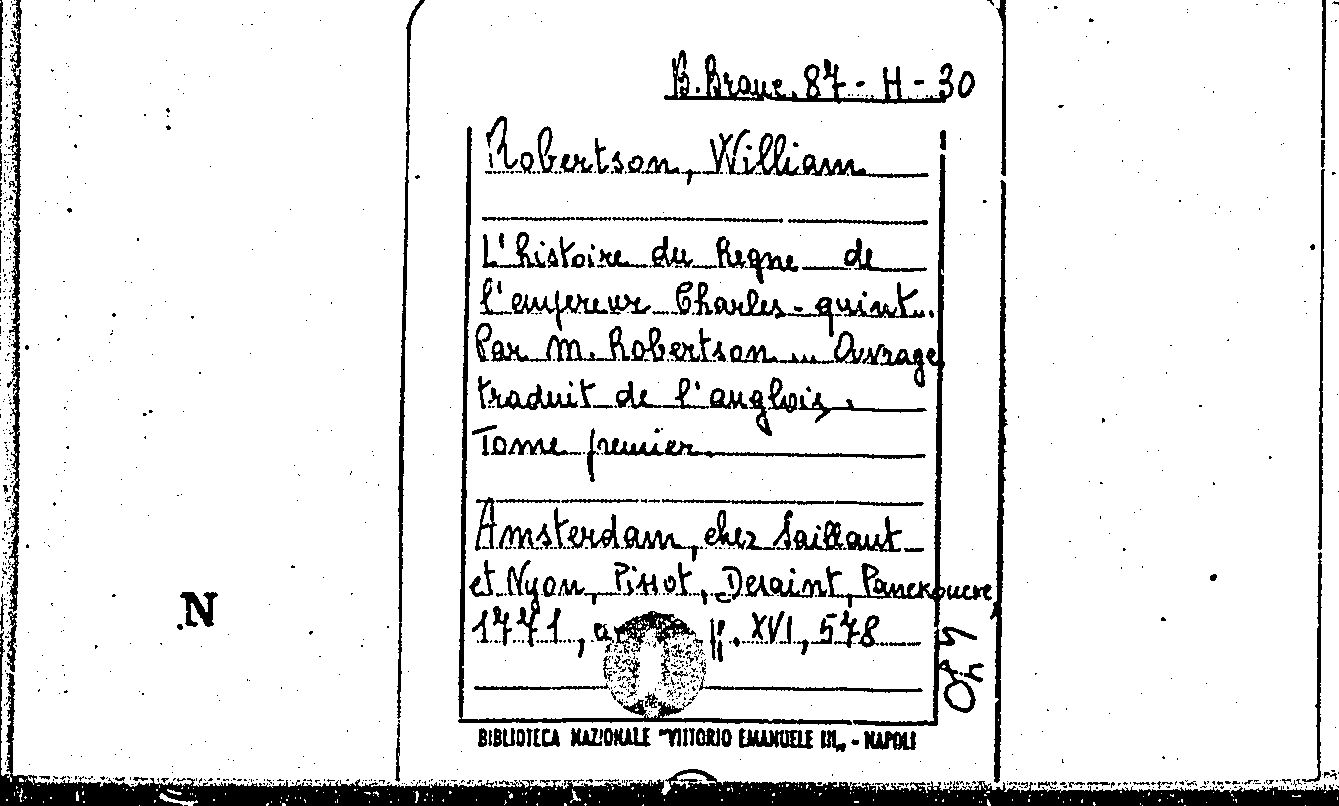 B. Branc. 87 - H - 30
Robertson, William
L'histoire du Regne de
l'empereur Charles-quint..
Par M. Robertson ... Ouvrage
traduit de l'anglois.
Tome premier.
Amsterdam, chez Saillant
et Nyon, Pissot, Desaint, Panckoucke,
1771, XVI, 578
N
BIBLIOTECA NAZIONALE "VITTORIO EMANUELE III„ - NAPOLI